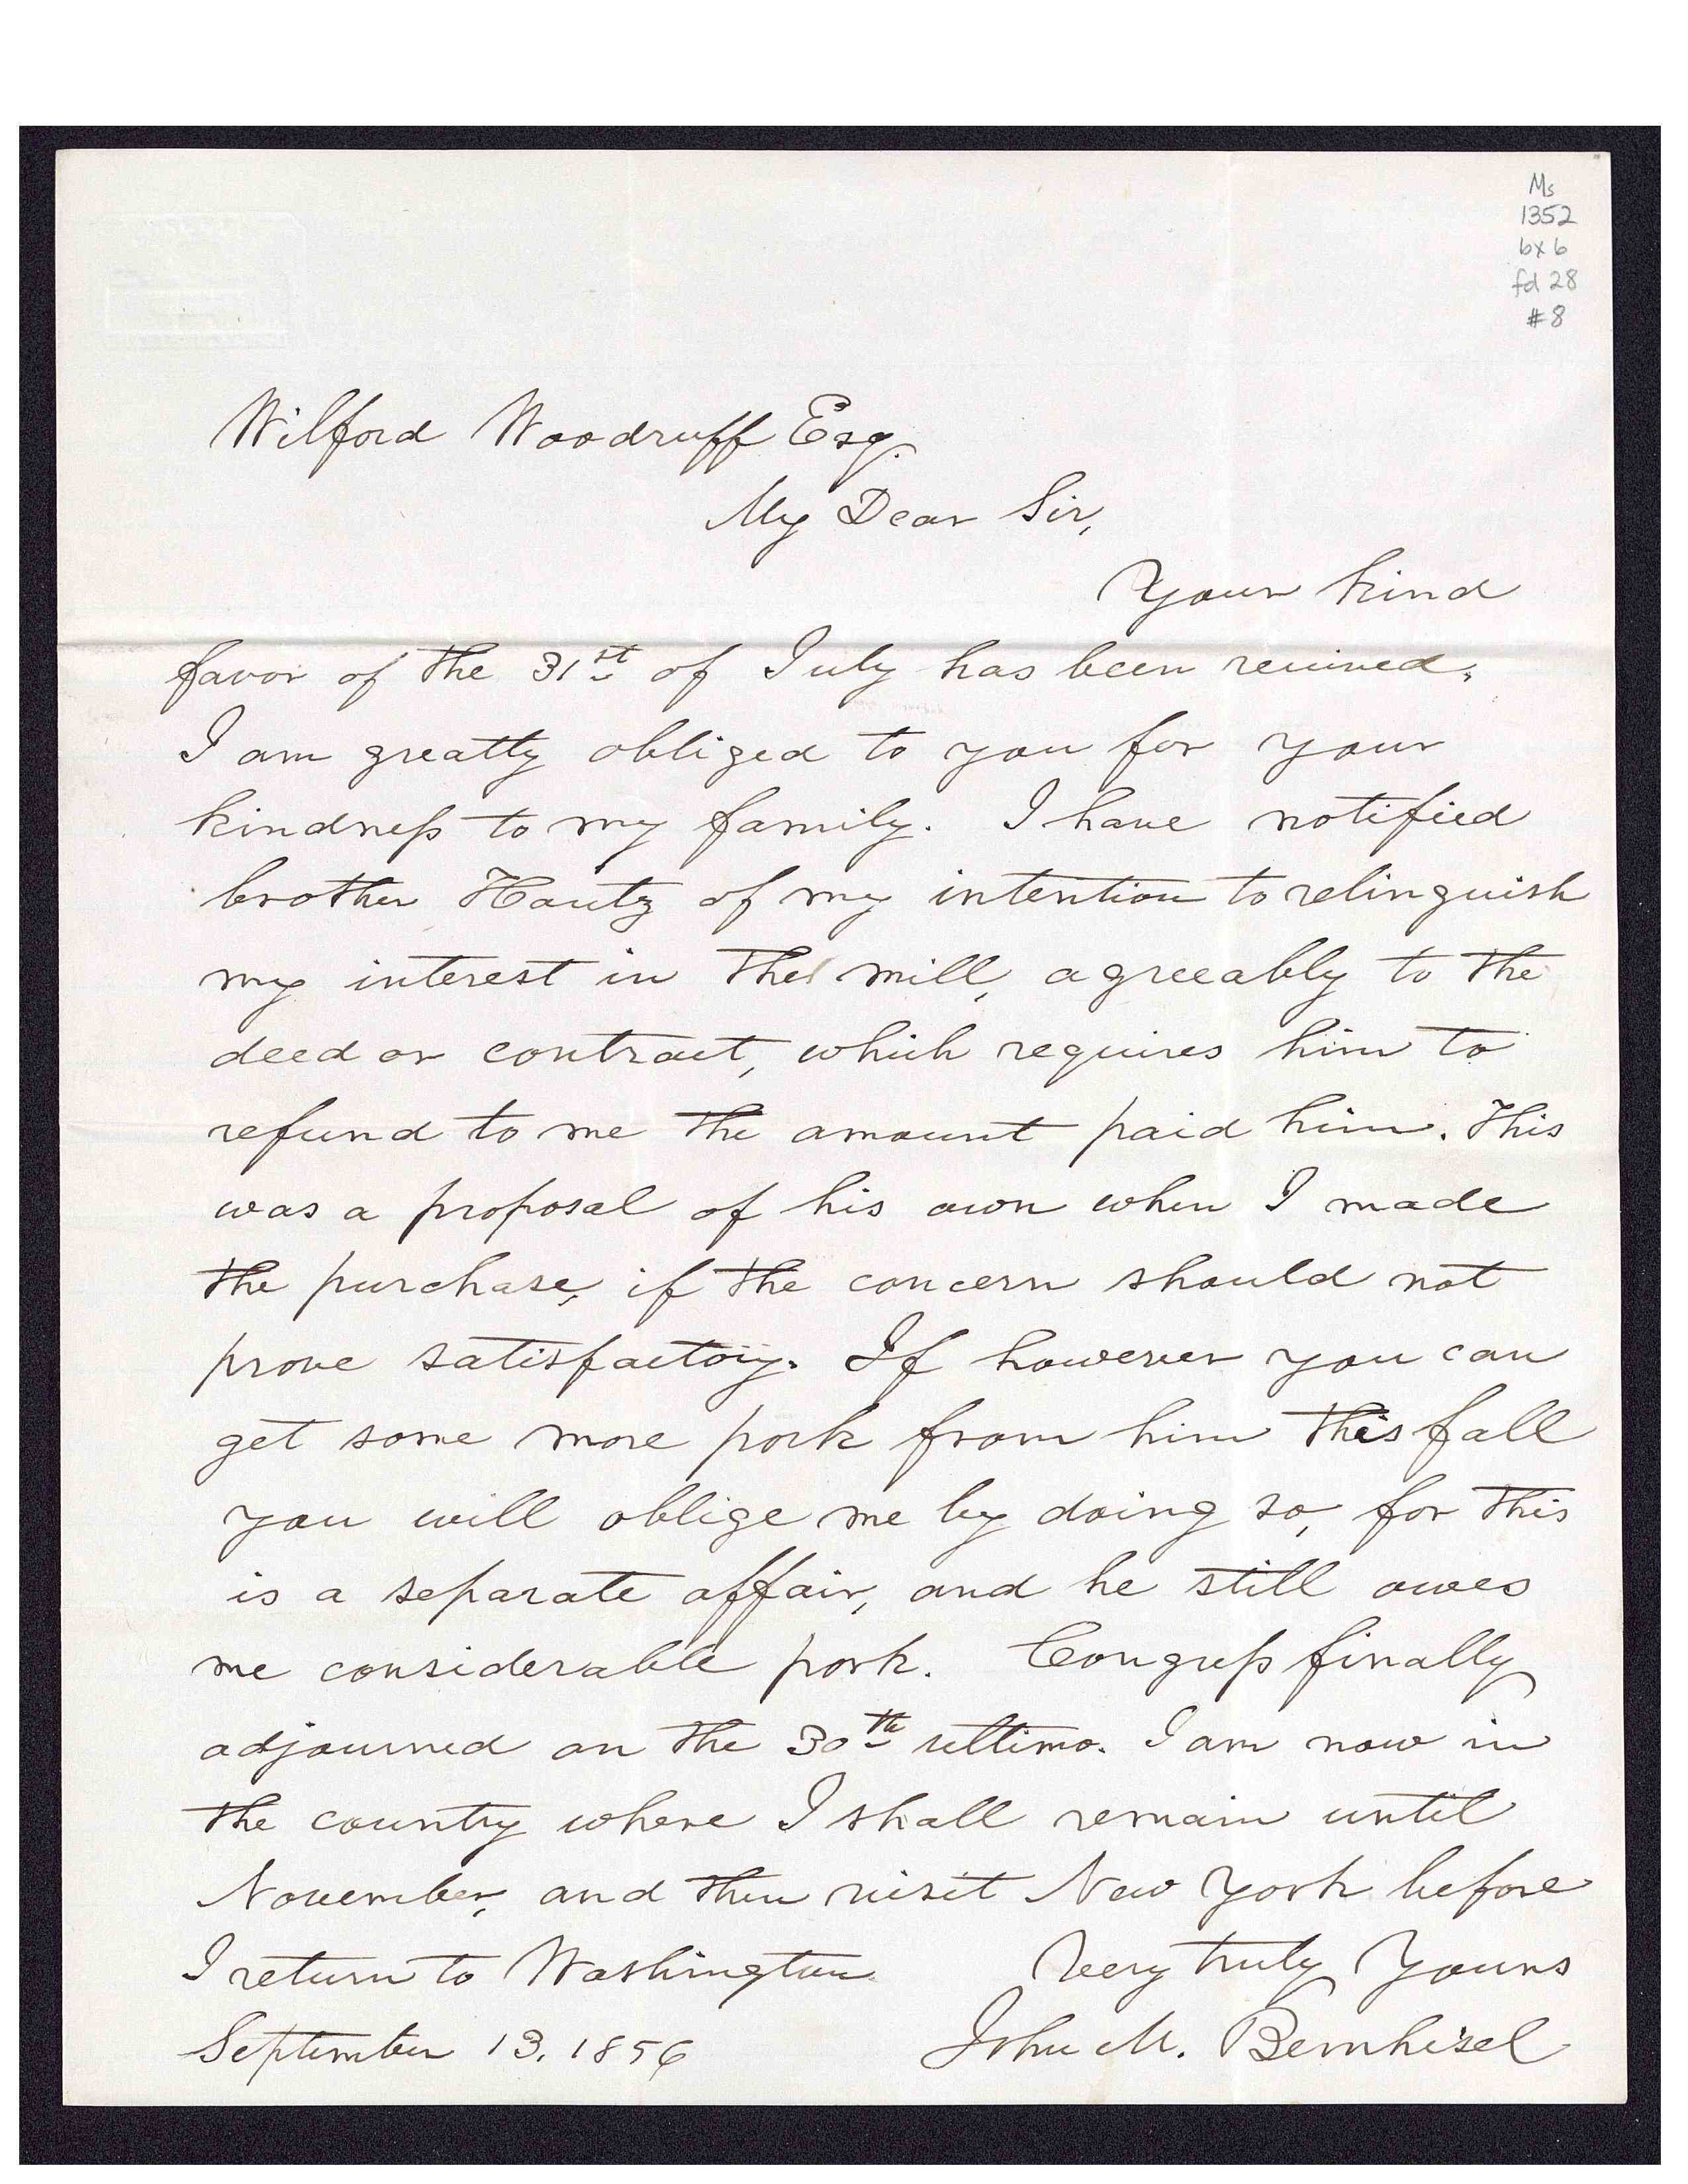 Ms
1352
bx 6
fd 28
#8
Wilford Woodruff Esq.
My Dear Sir,
Your kind
favor of the 31st of July has been received.
I am greatly obliged to you for your
kindness to my family. I have notified
brother Hautz of my intention to relinquish
my interest in the mill, agreeably to the
deed or contract, which requires him to
refund to me the amount paid him. This
was a proposal of his own when I made
the purchase, if the concern should not
prove satisfactory. If however you can
get some more pork from him this fall
you will oblige me by doing so, for this
is a separate affair, and he still owes
me considerable pork. Congress finally
adjourned on the 30th ultimo. I am now in
the country where I shall remain until
November, and then visit New York before
I return to Washington Very truly Yours
September 13, 1856 John M. Bernhisel